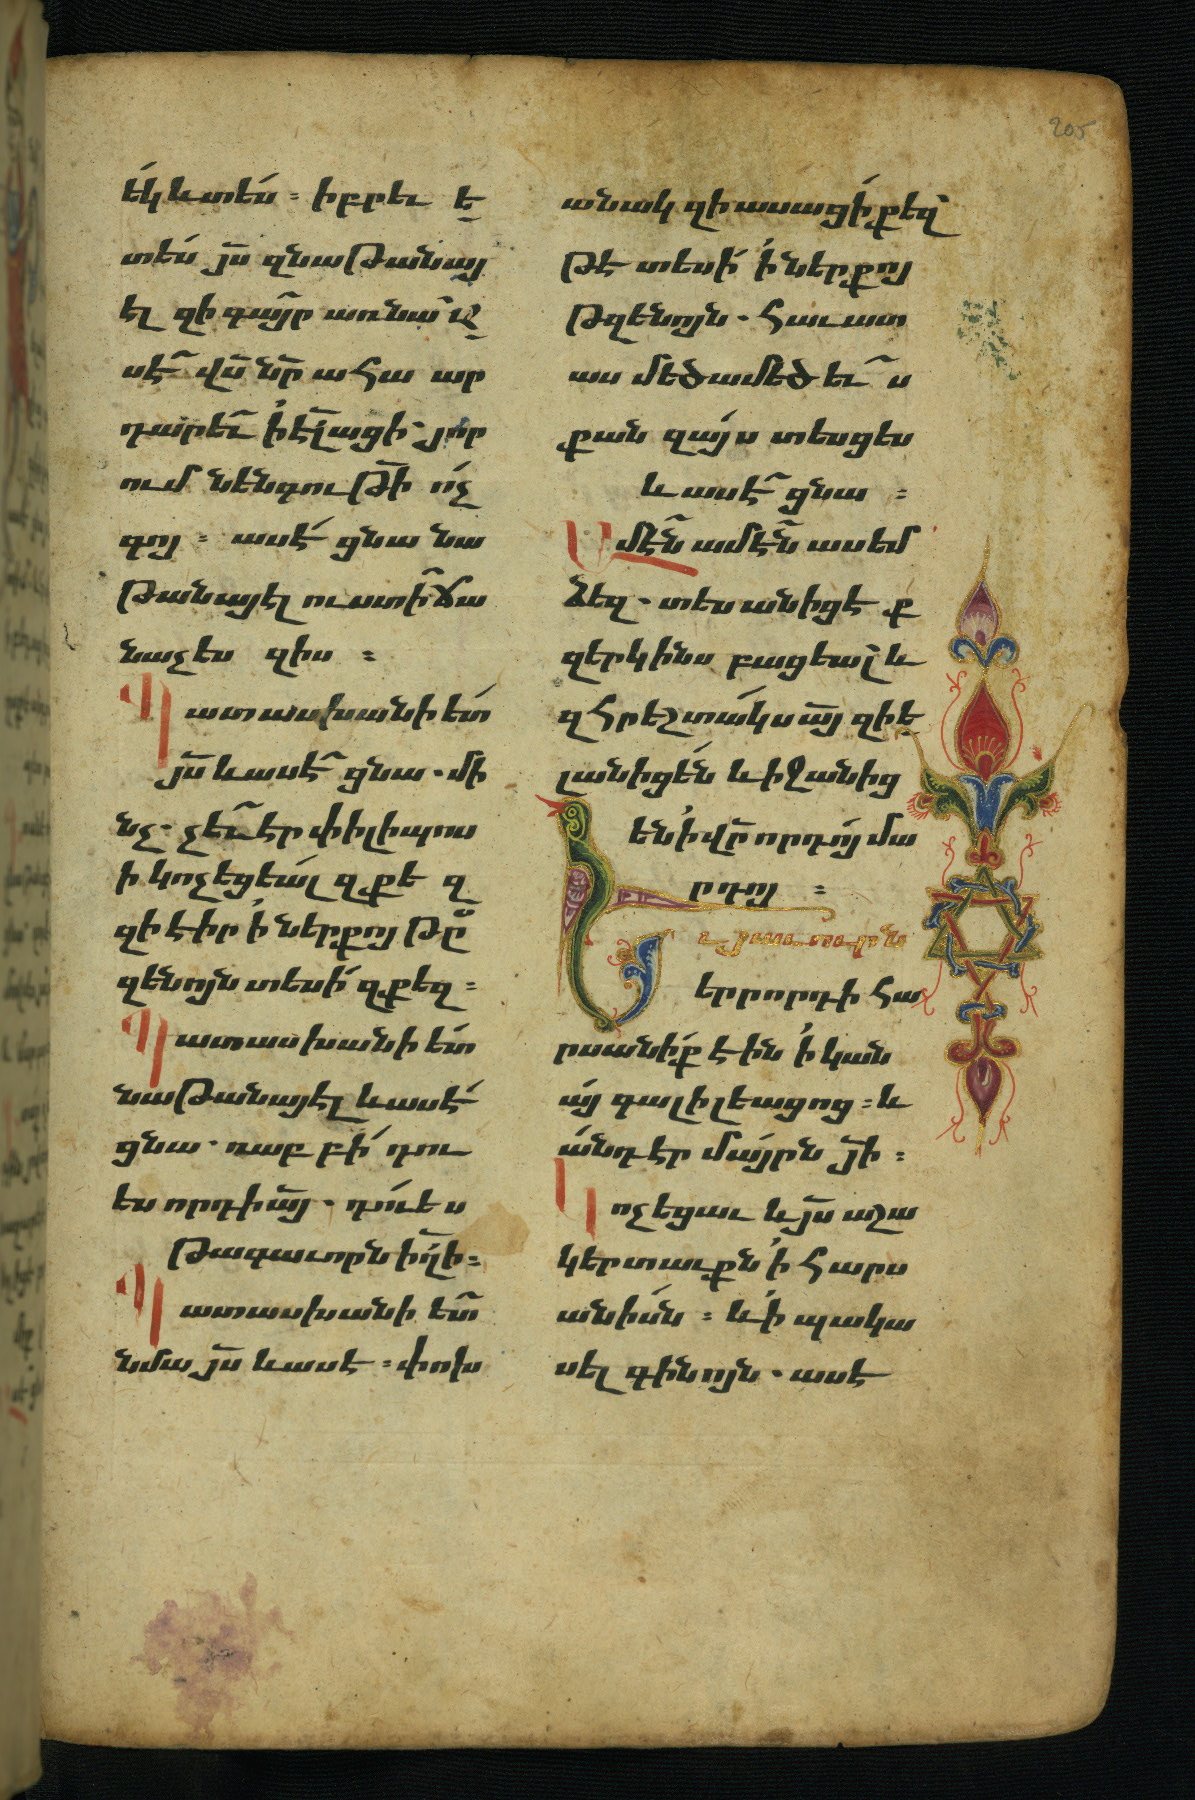 205
եկ և տես ։ իբրև ե
տես յս զնաթանայ
էլ զի գայր առնա և
սէ վս նր ահա ար
դարև իէլացի · յոր
ում նենգութի ոչ
գոյ ։ ասէ ցնա նա
թանայէլ ուստի ճա
նաչես զիս ։
Պատասխանի ետ
յս և ասէ ցնա · մի
նչ · չև էր փիլիպոս
ի կոչեցեալ զքե զ
զի էիր ի ներքոյ թը
զենոյն տեսի զքեզ ։
Պատասխանի ետ
նաթանայէլ և ասէ
ցնա · ռաբբի դու
ես որդի այ · դու ես
թագաւորն իլի ։
Պատասխանի ետ
նմա յս և ասէ ։ փոխ
անակ զի ասացի քեզ
թէ տեսի ի ներքոյ
թզենոյն · հաւատ
աս մեծամեծ ևս
քան զայս տեսցես
և ասէ ցնա ։
Ամէն ամէն ասեմ
ձեզ · տեսանիցէք
զերկինս բացեալ և
զհրեշտակս այ զի ե
լանիցեն և իջանից
են ի վր որդոյ մա
րդոյ ։
Եւ յաւուրն
երրորդի հա
րսանիք էին ի կան
այ գալիլեացոց ։ և
անդ էր մայրն յի ։
Կոչեցաւ և յս աշա
կերտաւքն ի հարս
անիսն ։ և ի պակա
սել գինոյն · ասէ